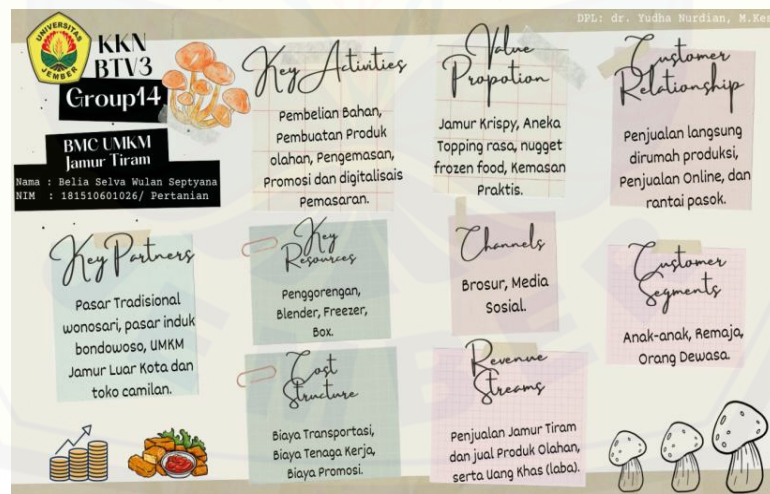 DPL: dr. Yudha Nurdian, M.Kes
UNIVERSITAS
JEMBER
KKN
BTV3
Group14
BMC UMKM
Jamur Tiram
Nama : Belia Selva Wulan Septyana
NIM : 181510601026/ Pertanian
Key Activities
Pembelian Bahan,
Pembuatan Produk
olahan, Pengemasan,
Promosi dan digitalisais
Pemasaran.
Value
Propotion
Jamur Krispy, Aneka
Topping rasa, nugget
frozen food, Kemasan
Praktis.
Customer
Relationship
Penjualan langsung
dirumah produksi,
Penjualan Online, dan
rantai pasok.
Key Partners
Pasar Tradisional
wonosari, pasar induk
bondowoso, UMKM
Jamur Luar Kota dan
toko camilan.
Key
Resources
Penggorengan,
Blender, Freezer,
Box.
Channels
Brosur, Media
Sosial.
Customer
Segments
Anak-anak, Remaja,
Orang Dewasa.
Cost
Structure
Biaya Transportasi,
Biaya Tenaga Kerja,
Biaya Promosi.
Revenue
Streams
Penjualan Jamur Tiram
dan jual Produk Olahan,
serta Uang Khas (laba).